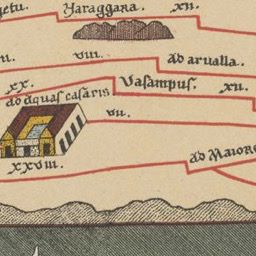 getu. Yaraggara. xii.
u. viii. ad arualla.
xx. Vasampus. xii.
ad aquas casaris vii.
xxviii. ad Maiore